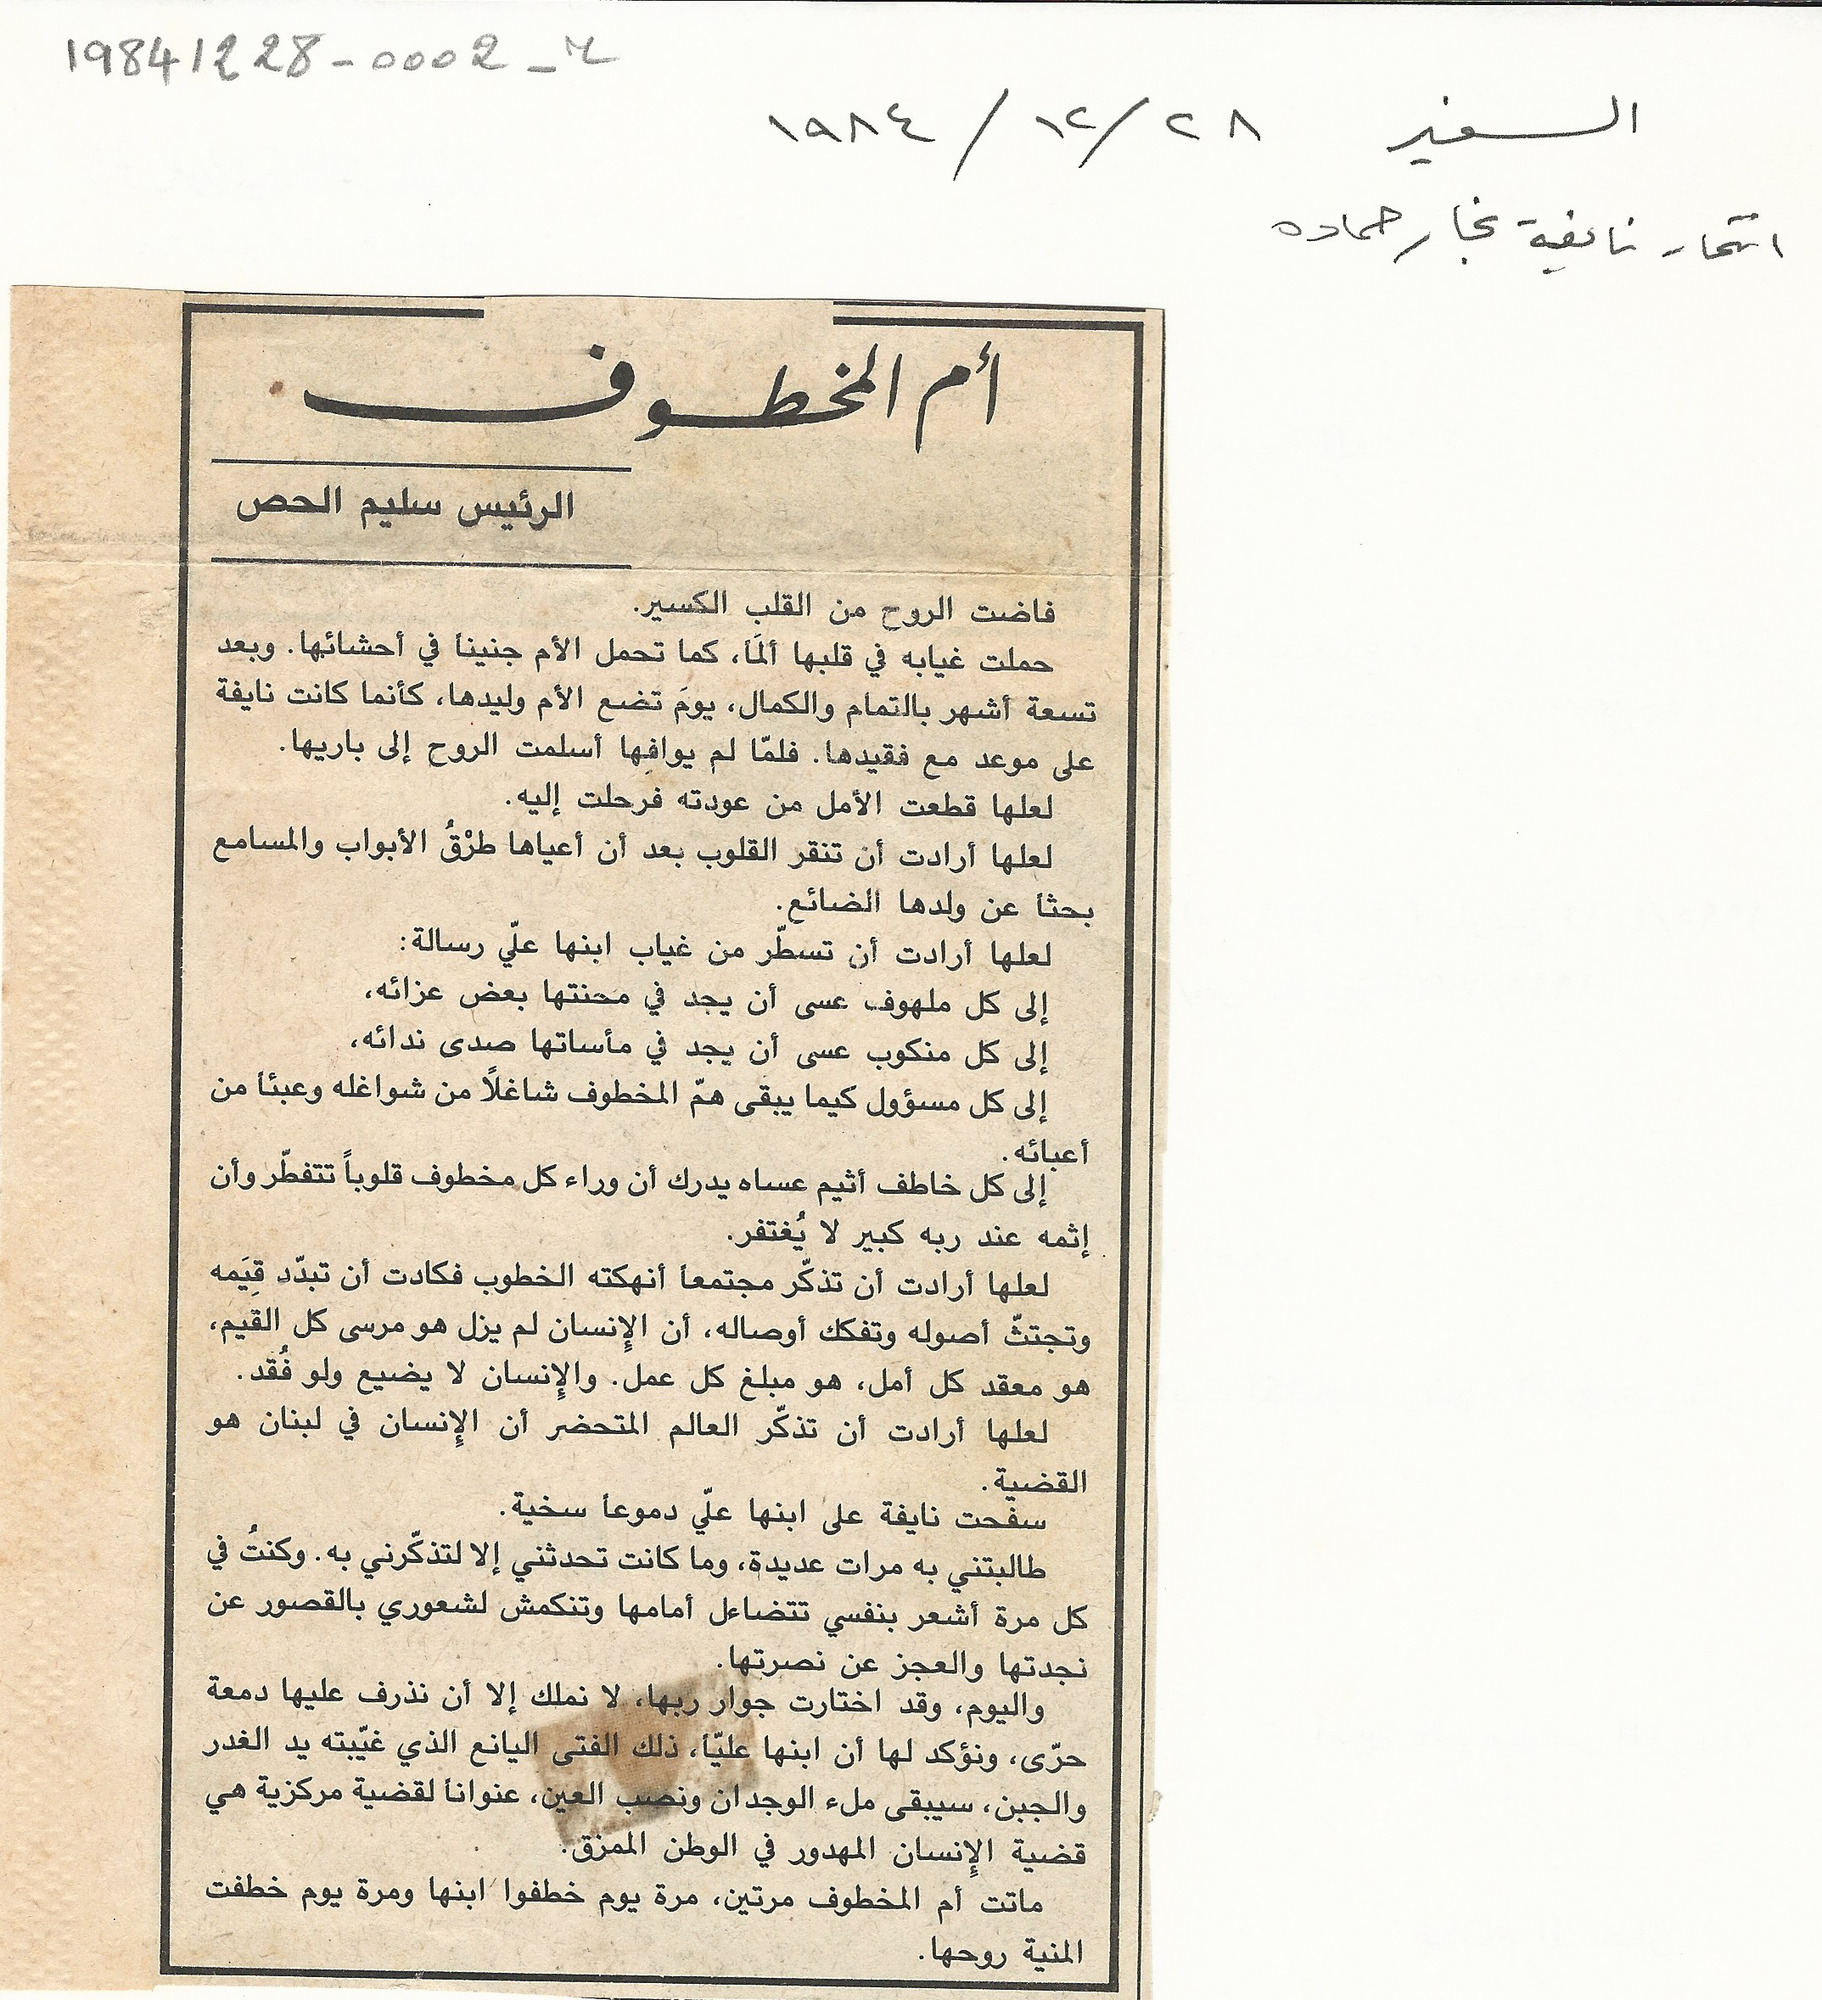 19841228-0002-م
السفير ٢٨/١٢/١٩٨٤
انتحار نايفة نجار حماده
أم المخطوف
الرئيس سليم الحص
فاضت الروح من القلب الكسير.
حملت غيابه في قلبها ألمَاً، كما تحمل الأم جنيناً في أحشائها. وبعد
تسعة أشهر بالتمام والكمال، يومَ تضع الأم وليدها، كأنما كانت نايفة
على موعد مع فقيدها. فلمّا لم يوافِها أسلمت الروح إلى باريها.
لعلها قطعت الأمل من عودته فرحلت إليه.
لعلها أرادت أن تنقر القلوب بعد أن أعياها طرْقُ الأبواب والمسامع
بحثاً عن ولدها الضائع.
لعلها أرادت أن تسطّر من غياب ابنها علّي رسالة:
إلى كل ملهوف عسى أن يجد في محنتها بعض عزائه،
إلى كل منكوب عسى أن يجد في مأساتها صدى ندائه،
إلى كل مسؤول كيما يبقى همّ المخطوف شاغلاً من شواغله وعبئاً من
أعبائه.
إلى كل خاطف أثيم عساه يدرك أن وراء كل مخطوف قلوباً تتفطّر وأن
إثمه عند ربه كبير لا يُغتفر.
لعلها أرادت أن تذكّر مجتمعاً أنهكته الخطوب فكادت أن تبدّد قِيَمه
وتجتثّ أصوله وتفكك أوصاله، أن الإنسان لم يزل هو مرسى كل القيم،
هو معقد كل أمل، هو مبلغ كل عمل. والإنسان لا يضيع ولو فُقد.
لعلها أرادت أن تذكّر العالم المتحضر أن الإنسان في لبنان هو
القضية.
سفحت نايفة على ابنها علّي دموعاً سخية.
طالبتني به مرات عديدة، وما كانت تحدثني إلا لتذكّرني به. وكنتُ في
كل مرة أشعر بنفسي تتضاءل أمامها وتنكمش لشعوري بالقصور عن
نجدتها والعجز عن نصرتها.
واليوم، وقد اختارت جوار ربها، لا نملك إلا أن نذرف عليها دمعة
حرّى، ونؤكد لها أن ابنها عليّاً، ذلك الفتى اليانع الذي غيّبته يد الغدر
والجبن، سيبقى ملء الوجدان ونصب العين، عنواناً لقضية مركزية هي
قضية الإنسان المهدور في الوطن الممزق.
ماتت أم المخطوف مرتين، مرة يوم خطفوا ابنها ومرة يوم خطفت
المنية روحها.